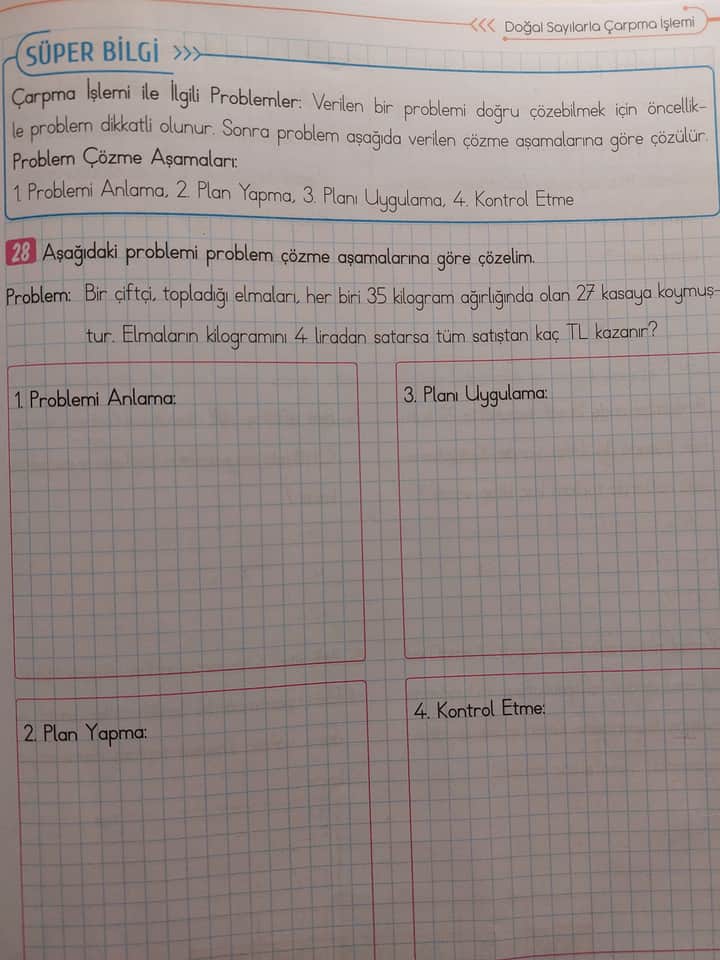 <<< Doğal Sayılarla Çarpma İşlemi
SÜPER BİLGİ >>>
Çarpma İşlemi ile İlgili Problemler: Verilen bir problemi doğru çözebilmek için öncellik-
le problem dikkatli olunur. Sonra problem aşağıda verilen çözme aşamalarına göre çözülür.
Problem Çözme Aşamaları:
1. Problemi Anlama, 2. Plan Yapma, 3. Planı Uygulama, 4. Kontrol Etme
28 Aşağıdaki problemi problem çözme aşamalarına göre çözelim.
Problem: Bir çiftçi, topladığı elmaları, her biri 35 kilogram ağırlığında olan 27 kasaya koymuş-
tur. Elmaların kilogramını 4 liradan satarsa tüm satıştan kaç TL kazanır?
1. Problemi Anlama:
3. Planı Uygulama:
2. Plan Yapma:
4. Kontrol Etme: